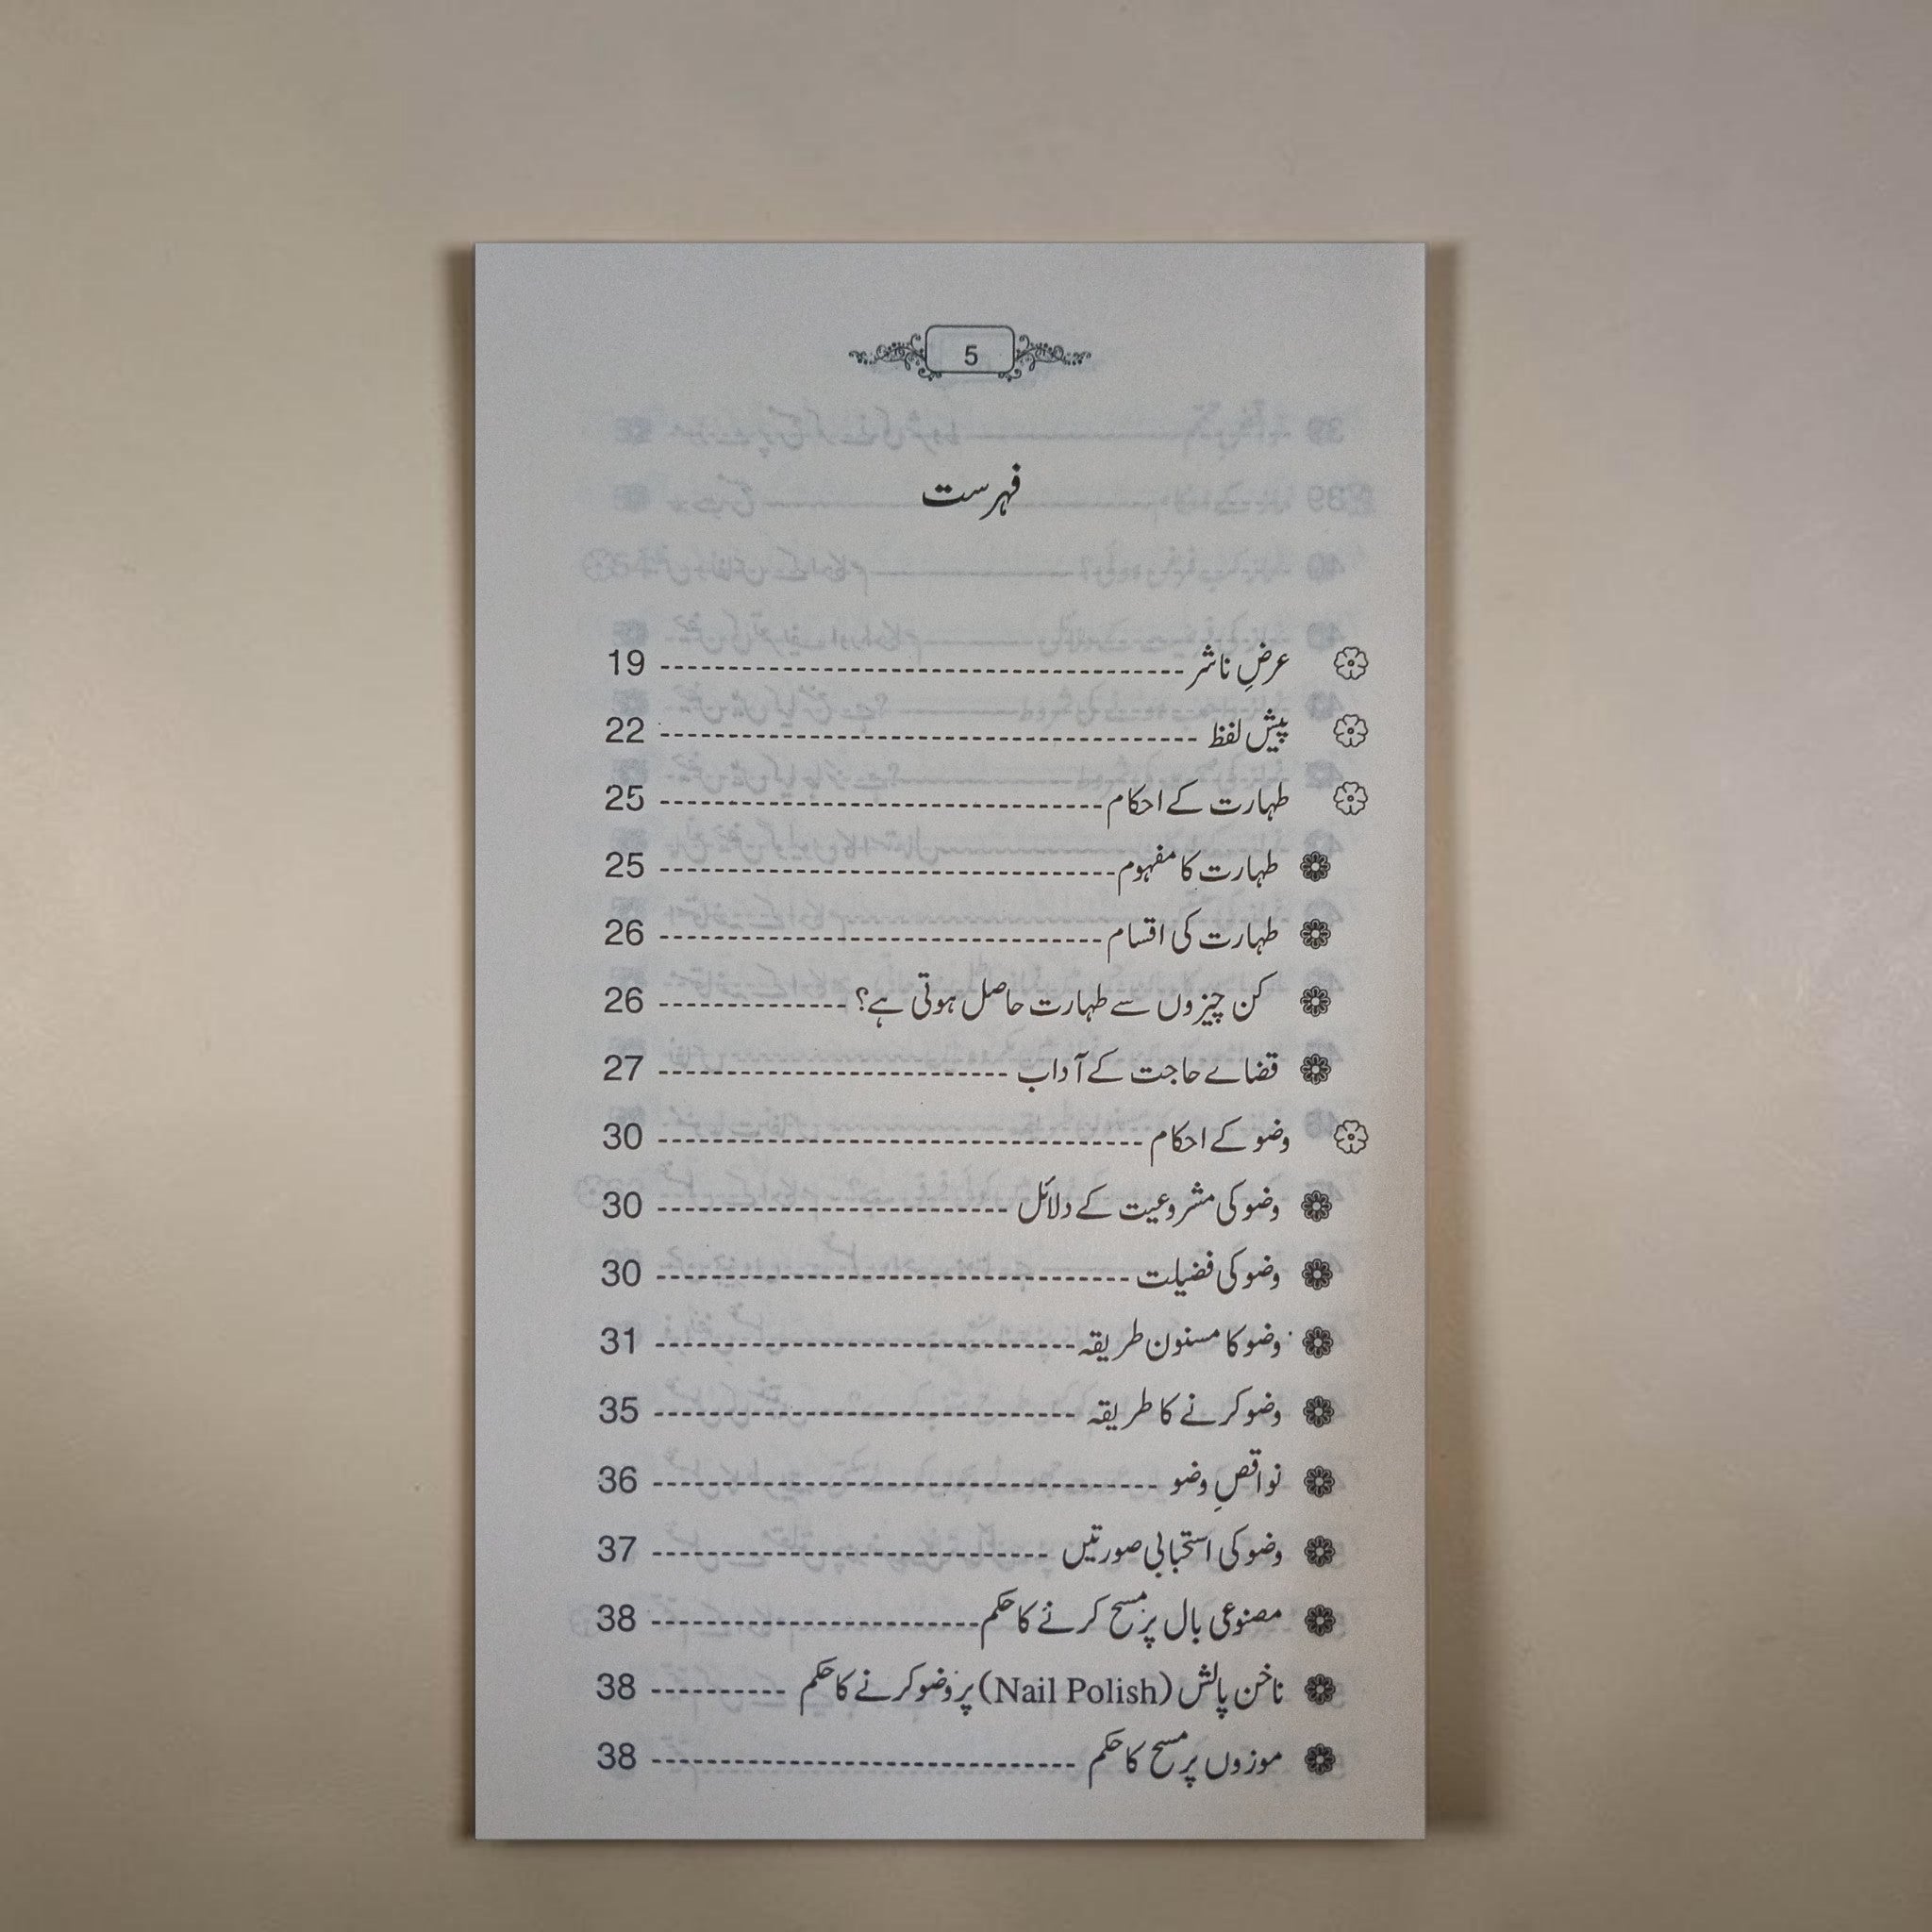 5
فہرست
عرضِ ناشر ------------------------------------- 19
پیش لفظ ------------------------------------- 22
طہارت کے احکام ------------------------------- 25
طہارت کا مفہوم -------------------------------- 25
طہارت کی اقسام ------------------------------- 26
کن چیزوں سے طہارت حاصل ہوتی ہے؟ ------------- 26
قضائے حاجت کے آداب ------------------------ 27
وضو کے احکام ---------------------------------- 30
وضو کی مشروعیت کے دلائل ------------------------ 30
وضو کی فضیلت --------------------------------- 30
وضو کا مسنون طریقہ ----------------------------- 31
وضو کرنے کا طریقہ ----------------------------- 35
نواقصِ وضو ----------------------------------- 36
وضو کی استحبابی صورتیں --------------------------- 37
مصنوعی بال پر مسح کرنے کا حکم ----------------------- 38
ناخن پالش (Nail Polish) پر وضو کرنے کا حکم ---------- 38
موزوں پر مسح کا حکم ----------------------------- 38